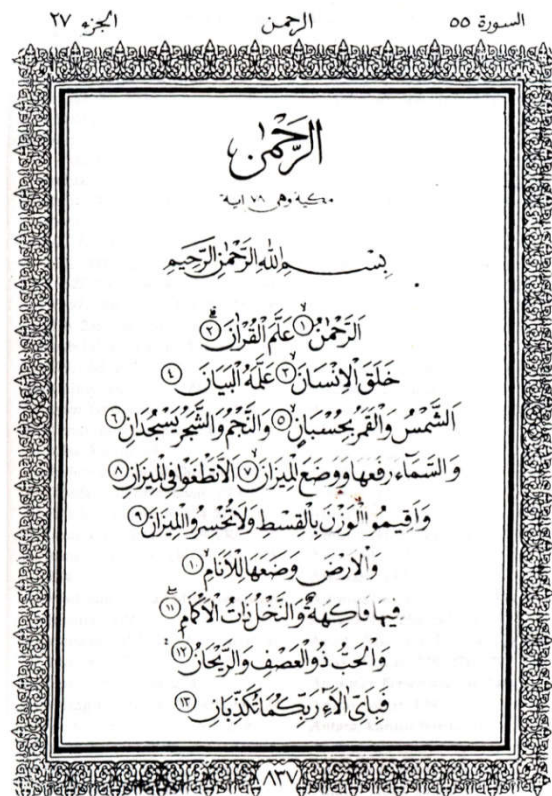 السورة ٥٥ الرحمن الجزء ٢٧
الرَّحْمٰن
مكية وهي ٧٨ اية
بِسْمِ اللهِ الرَّحْمٰنِ الرَّحِيمِ
اَلرَّحْمٰنُ ١ عَلَّمَ الْقُرْاٰنَ ٢
خَلَقَ الْاِنْسَانَ ٣ عَلَّمَهُ الْبَيَانَ ٤
اَلشَّمْسُ وَالْقَمَرُ بِحُسْبَانٍ ٥ وَالنَّجْمُ وَالشَّجَرُ يَسْجُدَانِ ٦
وَالسَّمَآءَ رَفَعَهَا وَوَضَعَ الْمِيزَانَ ٧ اَلَّا تَطْغَوْا فِي الْمِيزَانِ ٨
وَاَقِيمُوا الْوَزْنَ بِالْقِسْطِ وَلَا تُخْسِرُوا الْمِيزَانَ ٩
وَالْاَرْضَ وَضَعَهَا لِلْاَنَامِ ١٠
فِيهَا فَاكِهَةٌ وَالنَّخْلُ ذَاتُ الْاَكْمَامِ ١١
وَالْحَبُّ ذُو الْعَصْفِ وَالرَّيْحَانُ ١٢
فَبِاَيِّ اٰلَآءِ رَبِّكُمَا تُكَذِّبَانِ ١٣
٨٣٧